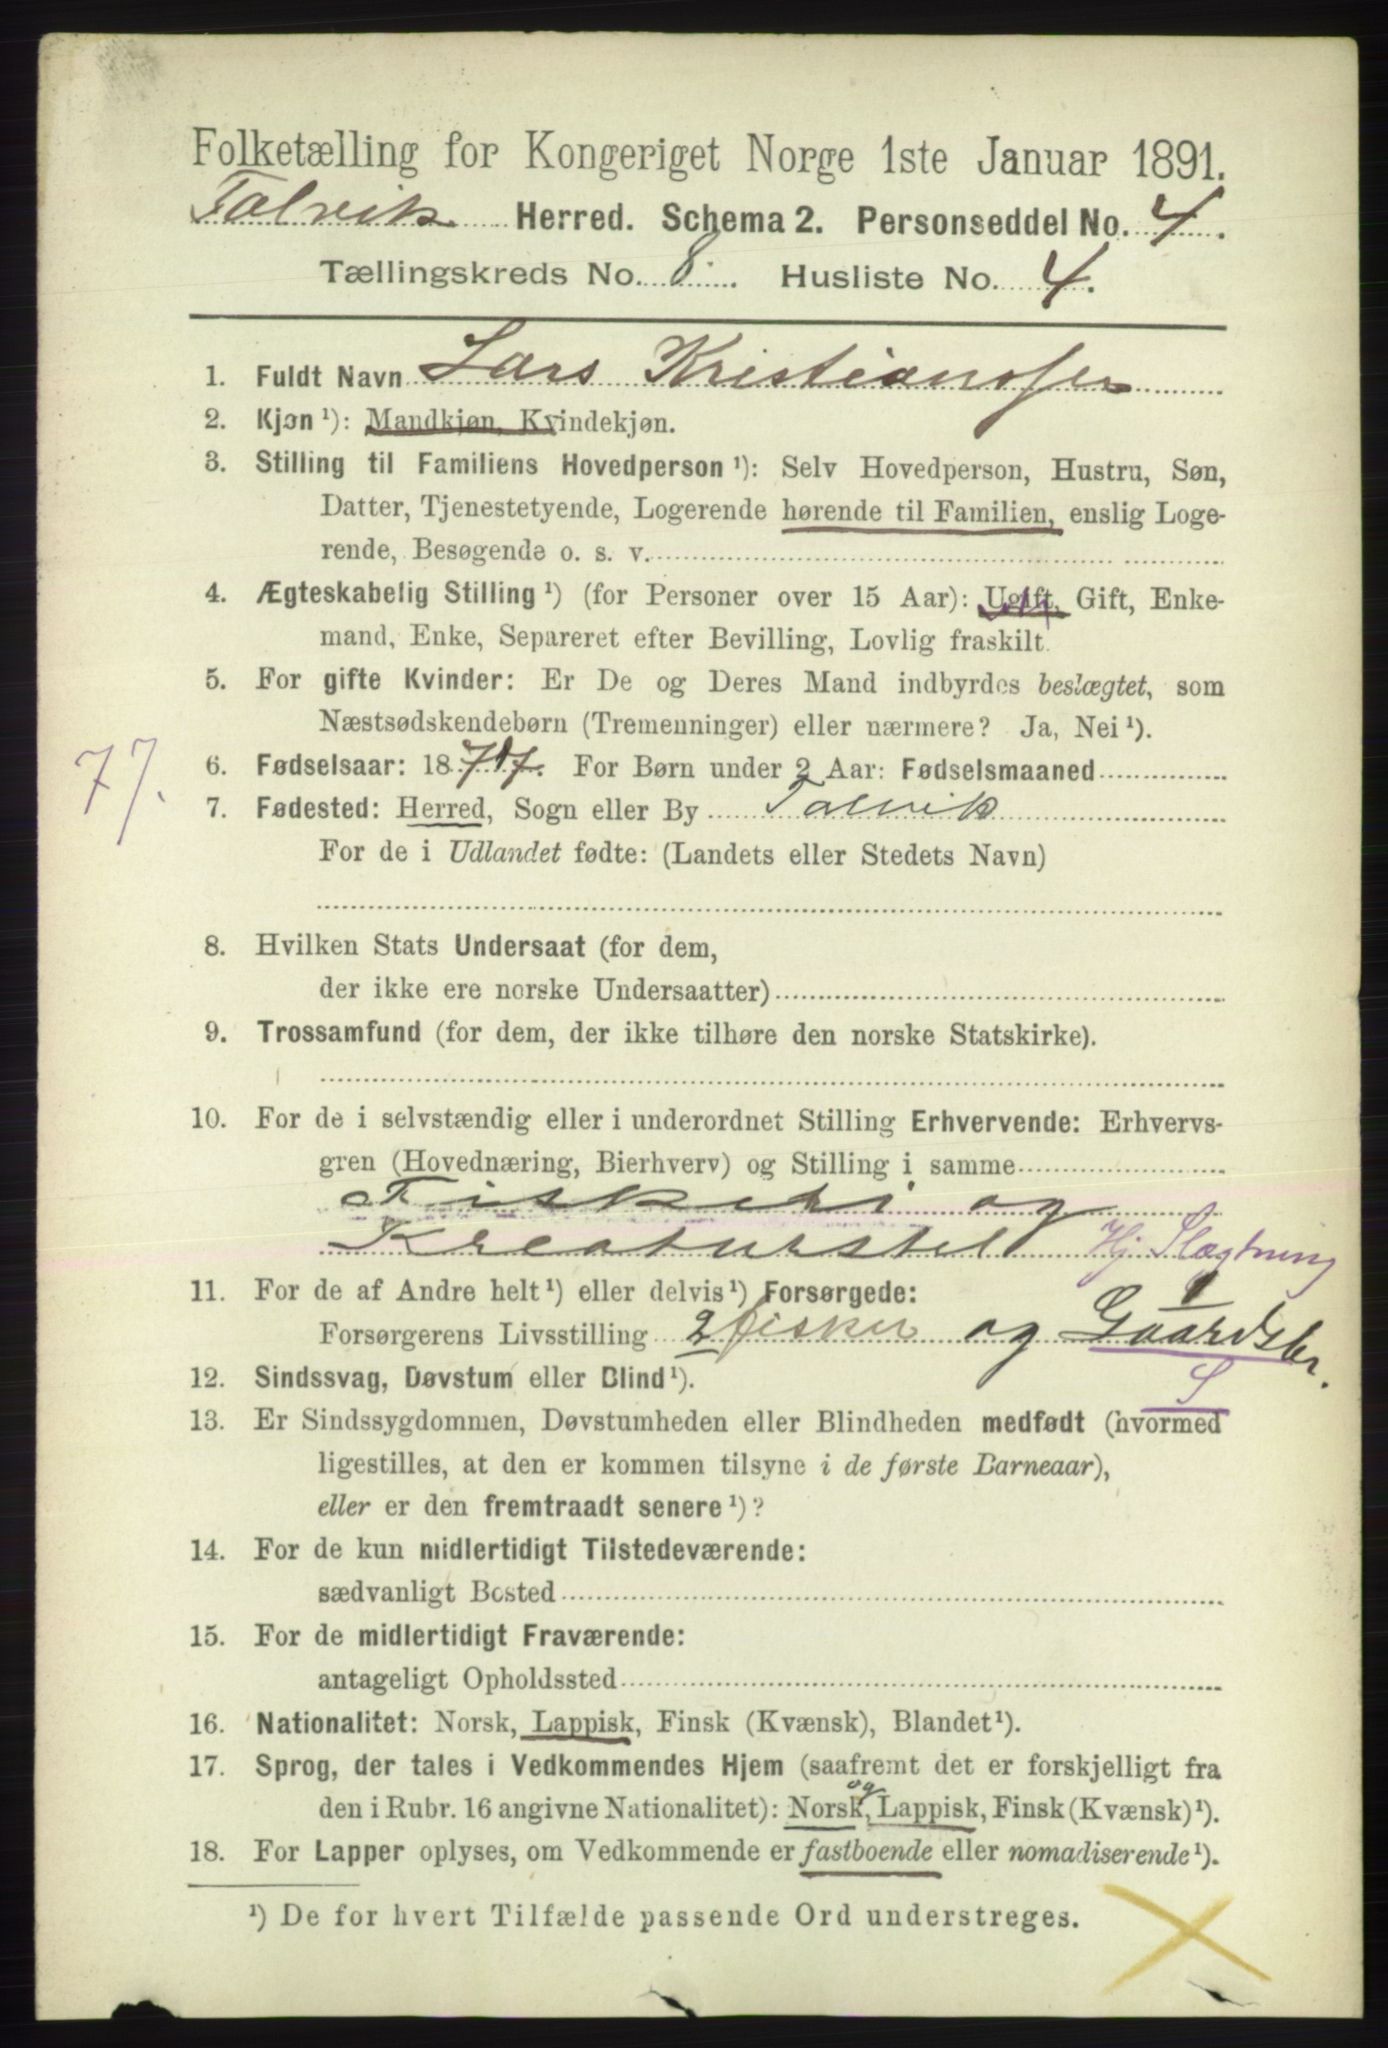 Folketælling for Kongeriget Norge 1ste Januar 1891.
Talvik Herred. Schema 2. Personseddel No. 4.
Tællingskreds No. 8. Husliste No. 4.
1. Fuldt Navn Lars Kristiansen
2. Kjøn ¹): Mandkjøn, Kvindekjøn.
3. Stilling til Familiens Hovedperson ¹): Selv Hovedperson, Hustru, Søn,
Datter, Tjenestetyende, Logerende hørende til Familien, enslig Loge-
rende, Besøgende o. s. v.
4. Ægteskabelig Stilling ¹) (for Personer over 15 Aar): Ugift, Gift, Enke-
mand, Enke, Separeret efter Bevilling, Lovlig fraskilt.
5. For gifte Kvinder: Er De og Deres Mand indbyrdes beslægtet, som
Næstsødskendebørn (Tremenninger) eller nærmere? Ja, Nei ¹).
77.
6. Fødselsaar: 1877. For Børn under 2 Aar: Fødselsmaaned
7. Fødested: Herred, Sogn eller By Talvik
For de i Udlandet fødte: (Landets eller Stedets Navn)
8. Hvilken Stats Undersaat (for dem,
der ikke ere norske Undersaatter)
9. Trossamfund (for dem, der ikke tilhøre den norske Statskirke).
10. For de i selvstændig eller i underordnet Stilling Erhvervende: Erhvervs-
gren (Hovednæring, Bierhverv) og Stilling i samme
Fiskeri og
Kreaturstel Hj. Slægtning
11. For de af Andre helt ¹) eller delvis ¹) Forsørgede: 1
Forsørgerens Livsstilling 2 fisker og Gaardsbr.
12. Sindssvag, Døvstum eller Blind ¹). S
13. Er Sindssygdommen, Døvstumheden eller Blindheden medfødt (hvormed
ligestilles, at den er kommen tilsyne i de første Barneaar),
eller er den fremtraadt senere ¹)?
14. For de kun midlertidigt Tilstedeværende:
sædvanligt Bosted
15. For de midlertidigt Fraværende:
antageligt Opholdssted
16. Nationalitet: Norsk, Lappisk, Finsk (Kvænsk), Blandet ¹).
17. Sprog, der tales i Vedkommendes Hjem (saafremt det er forskjelligt fra
den i Rubr. 16 angivne Nationalitet): Norsk, og Lappisk, Finsk (Kvænsk) ¹).
18. For Lapper oplyses, om Vedkommende er fastboende eller nomadiserende ¹).
¹) De for hvert Tilfælde passende Ord understreges.